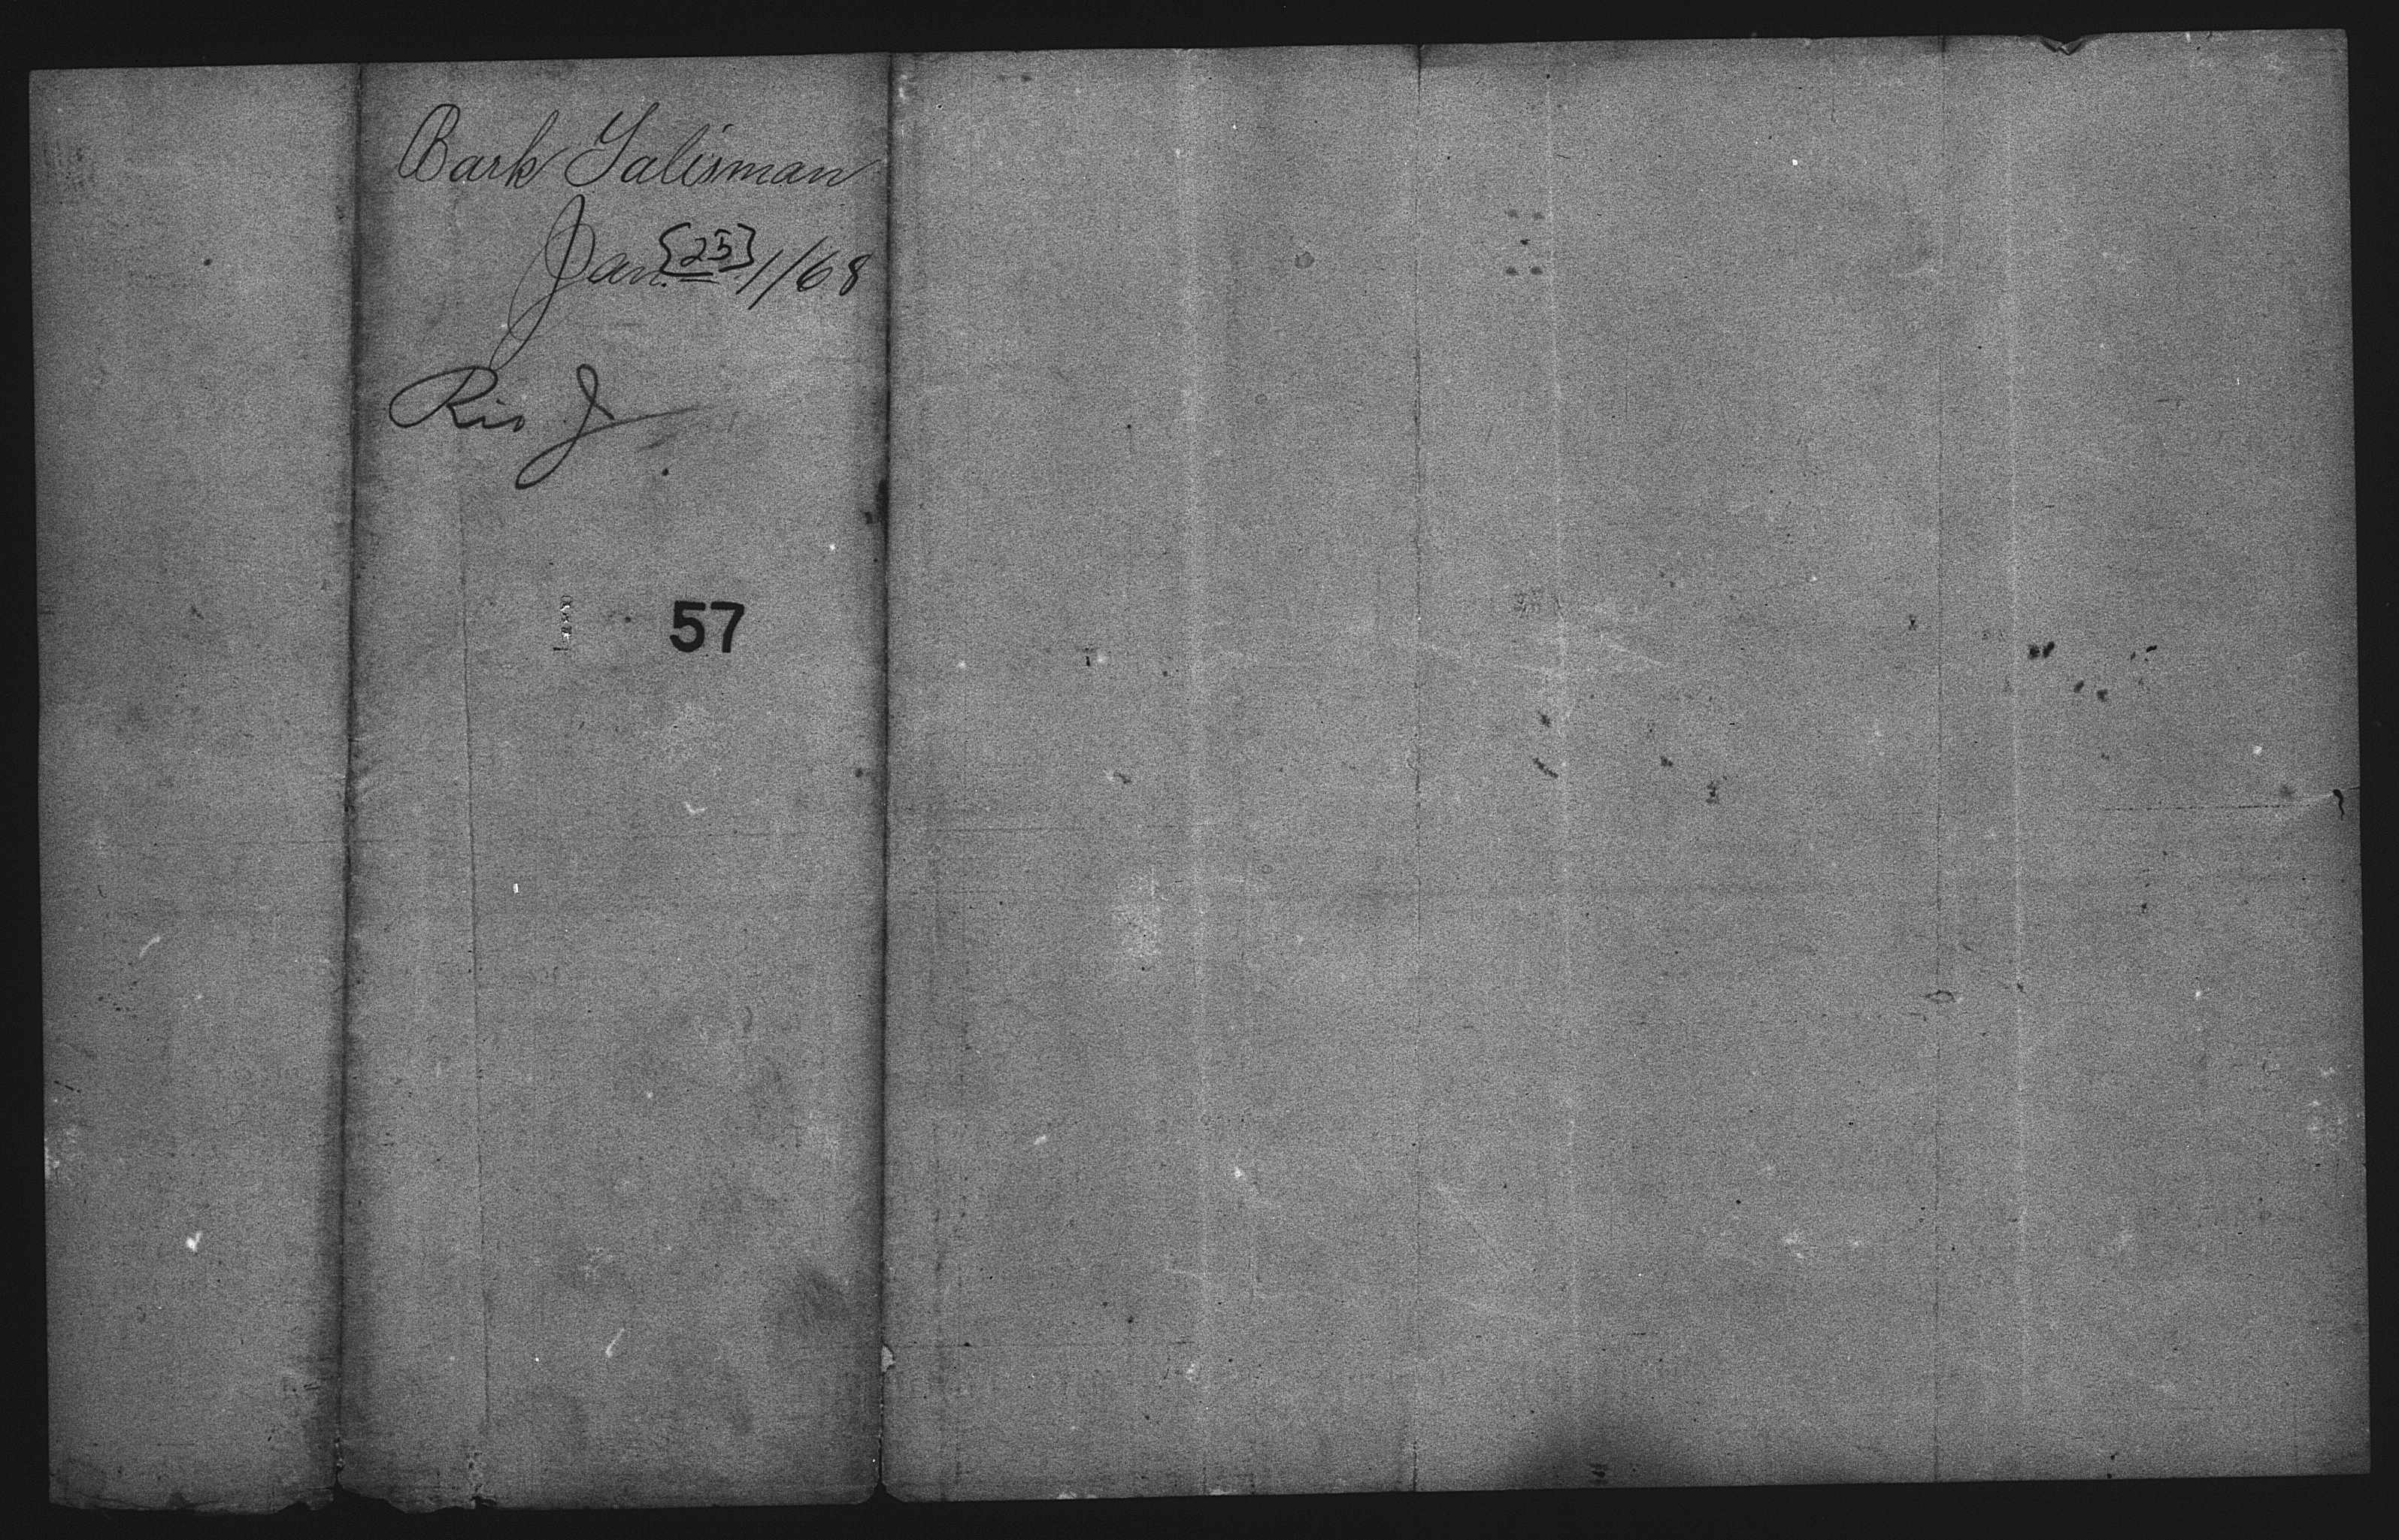 Bark Talisman
Jan. {25} 1/68
Rio J
57